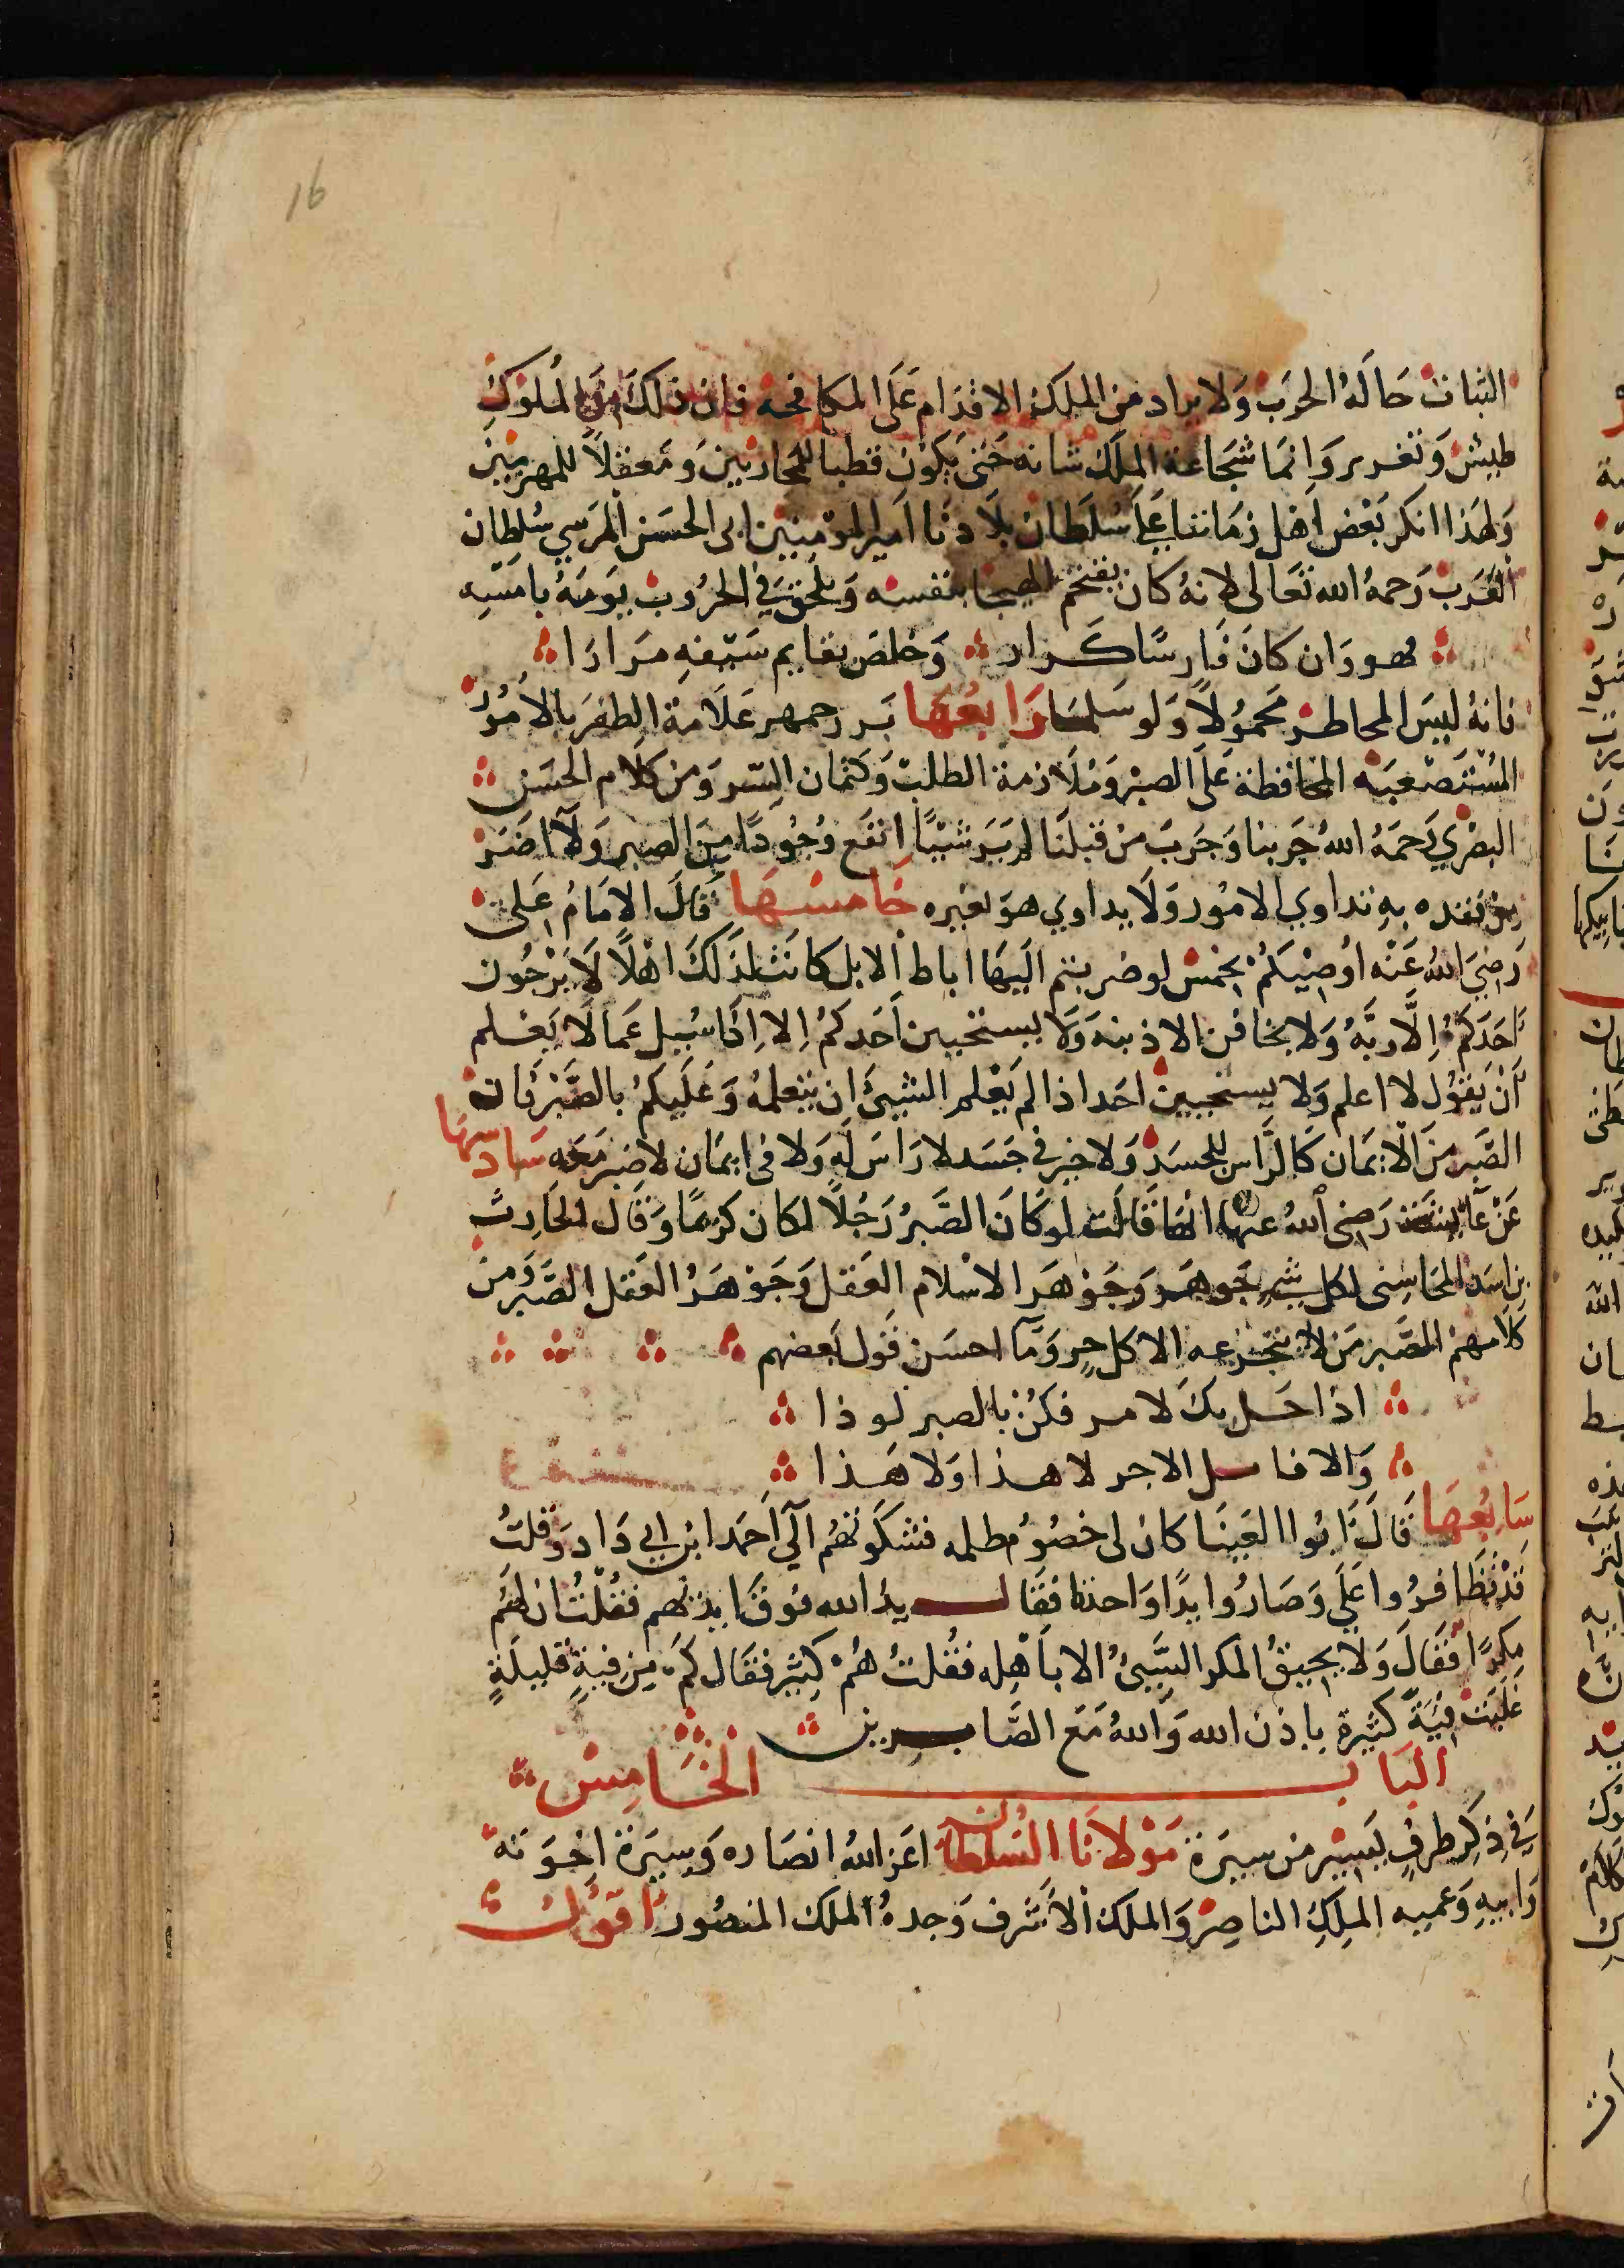 16
الثبات حَالَهُ الحَرب وَلا يراد من الملك الاقدام عَلَى المكافحه فان ذلك من الملوك
طيش وَتغرير وَانما شجَاعة الملك شانه حَتى يَكون قطبا للمحاربين وَمعقلاً للمهزمين
وَلهَذا انكر بَعْض اهل زمَاننا عَلى سُلطَان بلادنا امير المؤمنين ابى الحسَن المرسي سُلطان
الغَرب رَحمهُ الله تعَالى لانهُ كان يقتحم الهيجا بنفسه وَيلحق في الحرُوب يَومَهُ بامسَه
فهو وَان كانَ فَارسًا كرار وَخلصَ بقايم سَيفهِ مرَارَا
فانهُ ليسَ المخاطر محموُلاً وَلو سلما رَابعُهَا بزرجمهر عَلامة الظفر بالامُور
المُسْتَصْعبَه المحَافظة عَلَى الصبْر وَمُلازمة الطلب وَكتمان السّر وَمن كلام الحسَن
البصْري رَحمَهُ اللهُ جَربنا وَجَرب من قبلنَا لم يَر شيئًا انفع وُجُودًا مِنَ الصبر وَلا اضَر
من فقده به تداوي الامُور وَلَا يداوي هوَ بغيره خَامسُهَا قَالَ الامَامُ عَلي
رَضِيَ اللهُ عَنْه اوُصِيْكمُ بخمْس لو ضربتم اليهَا اباط الابل كانت لذَلكَ اهْلاً لَا يَرْجُون
اَحَدَكمُ اِلَّا رَبَّهُ وَلا يخافن الا ذبنهَ وَلا يستحيين اَحَدكمُ اِلا اِذَا سُيِل عَما لَا يَعْلم
اَنْ يَقُول لا اعلم وَلا يستحيين احَد اذا لم يَعْلم الشيئ ان يتعلمُه وَعَلَيكمُ بالصَّبْر فَان
الصَّبر منَ الايمَان كَالرَّاس للجسَد وَلا خير في جَسَد لا رَاسَ لَه وَلا في ايمَان لا صَبر مَعَه سَادسهَا
عَنْ عَايشة رَضي اللهُ عنهَا انهَا قَالت لو كَانَ الصَّبرُ رَجُلاً لكان كريمًا وَقَال الحَارث
بن اسَد المحَاسبى لكل شيء جَوهَر وَجَوْهَر الاسْلام العَقل وَجَوْهَرُ العَقل الصَّبر وَمن
كلامهمُ الصَّبر مَن لا يتجرعه الا كل حر وَمَا احسَن قول بعضهم
اذا حَل بكَ لامر فكنْ بالصبر لوذا
وَالا فاسل الاجر لا هذا وَلا هَذا
سَابعُهَا قَالَ ابُوا العَينَا كان لى خصُوُم ظلمه فشكوتهُم الي احَمد ابن ابي دَاد وَقلتُ
قدْ تظَافرُوا عَلي وَصَارُوا يدًا وَاحدة فقَال يدُ الله فوقَ ايديهم فقُلتُ ان لهُم
مكرًا فقَالَ وَلا يحيقُ المكر السّيئُ الا باَهْله فقُلتُ هُمْ كثير فقَال كم من فيةٍ قليلَةٍ
غلبَت فيةً كثيرة باذن الله وَاللهُ مَعَ الصَّابرين
البَاب الخَامِسْ
في ذِكرِ طرفٍ يَسِيْرٍ من سيرَة مَوْلانَا السُلطان اعَز اللهُ انصَاره وَسِيرَة اخوَته
وَابيهِ وَعميه الملِكِ الناصِر وَالملك الاَشرف وَجدهُ الملك المنصُور اقوُلُ